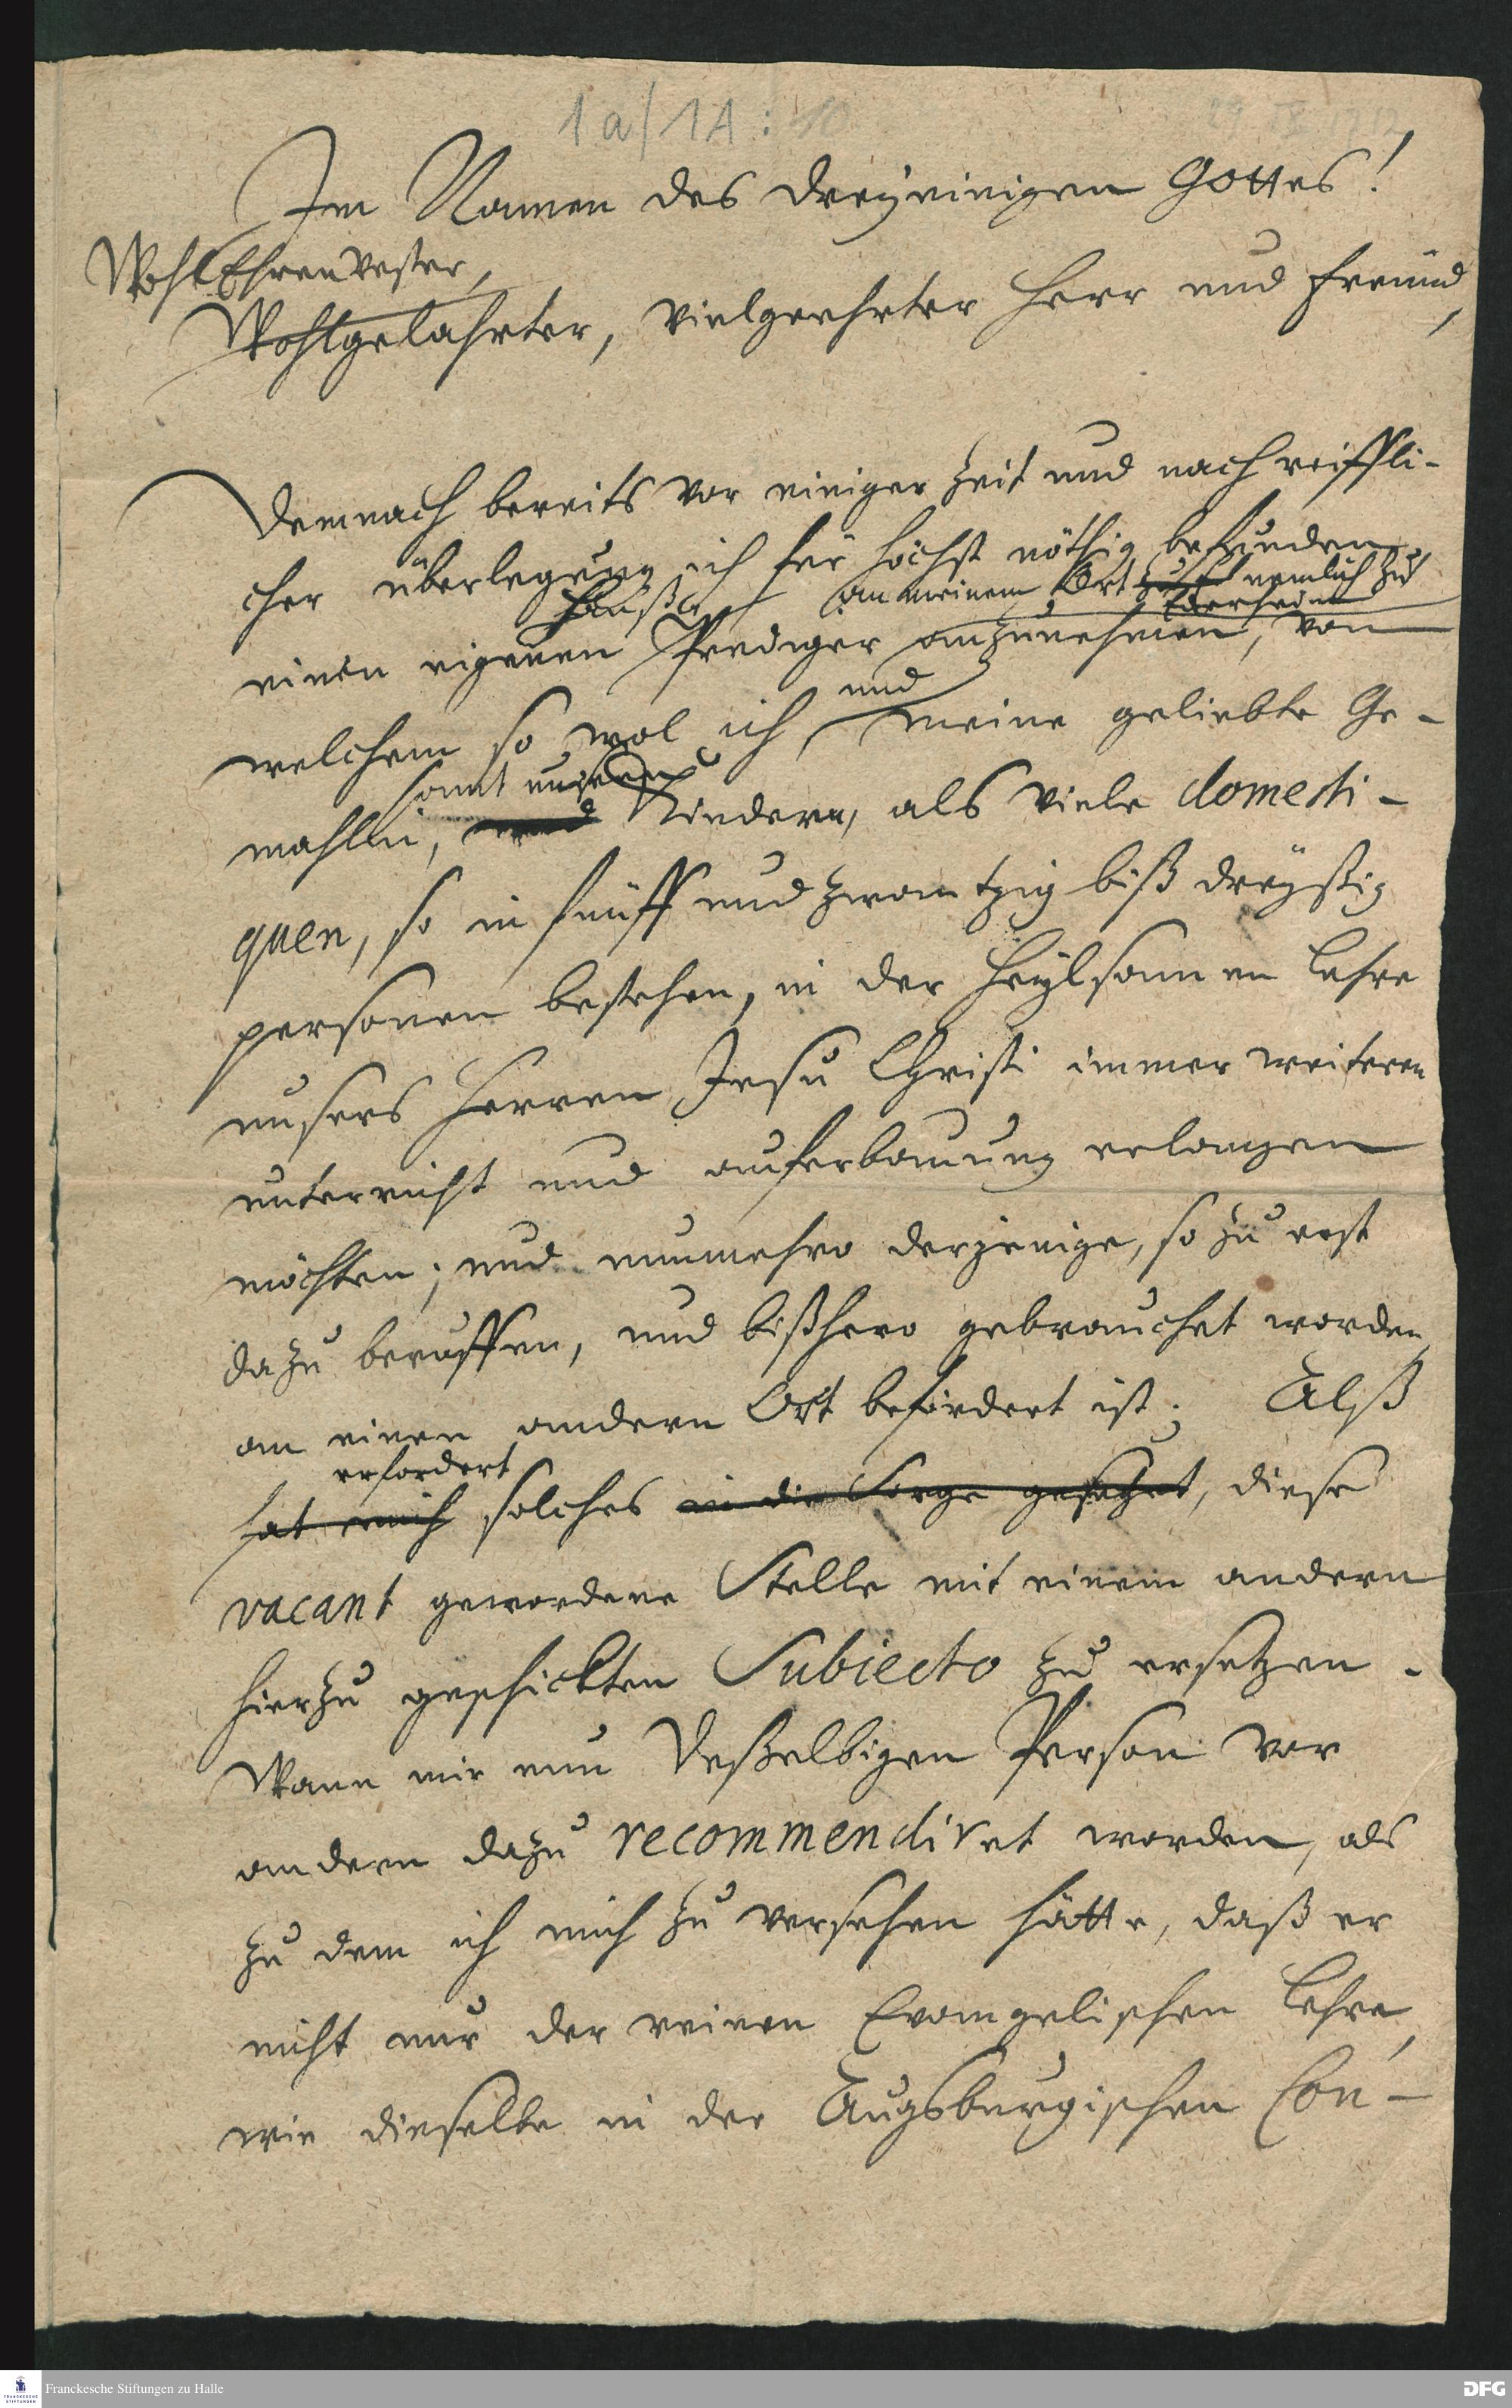 1a/1A:10
29 IX 1712
Im Namen des dreyeinigen Gottes!
WohlEhrenVester,
Wohlgelahrter, vielgeehrter Herr und Freund,
Demnach bereits vor einiger Zeit und nach reiffli-
cher überlegung ich für höchst nöthig befunden,
Hauß an meinem Ort nemlich zu
einen eigenen Prediger anzunehmen, von
und
welchem so wol ich meine geliebte Ge-
samt unseren
mahlin, und Kindern, als viele domesti-
quen, so in fünff und zwantzig biß dreyßig
personen bestehen, in der Heylsamen Lehre
unsers Herren Jesu Christi immer weiteren
unterricht und auferbauung erlangen
möchten; und nunmehro derjenige, so zu erst
dazu beruffen, und bißhero gebrauchet worden,
an einen andern Ort befördert ist; Alß
erfordert
hat mich solches in die Sorge gesetzet, diese
vacant gewordene Stelle mit einem andern
hierzu geschickten Subiecto zu ersetzen.
Wann mir nun deßelbigen Person vor
andern dazu recommendiret worden, als
zu dem ich mich zu versehen hätte, daß er
nicht nur der reinen Evangelischen Lehre,
wie dieselbe in der Augsburgischen Con-
Franckesche Stiftungen zu Halle
DFG